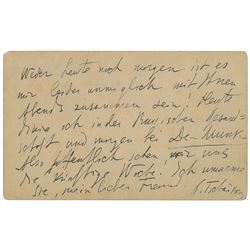 Weder heute noch morgen ist es
mir leider unmöglich mit Ihnen
Abends zusammen sein! Heute
dinire ich in der Russischen Gesand-
schaft und morgen bei De Munck
Also hoffentlich sehen wir uns
die künftige Woche. Ich umarme
Sie, mein lieber Freund. P. Tschaikowsky